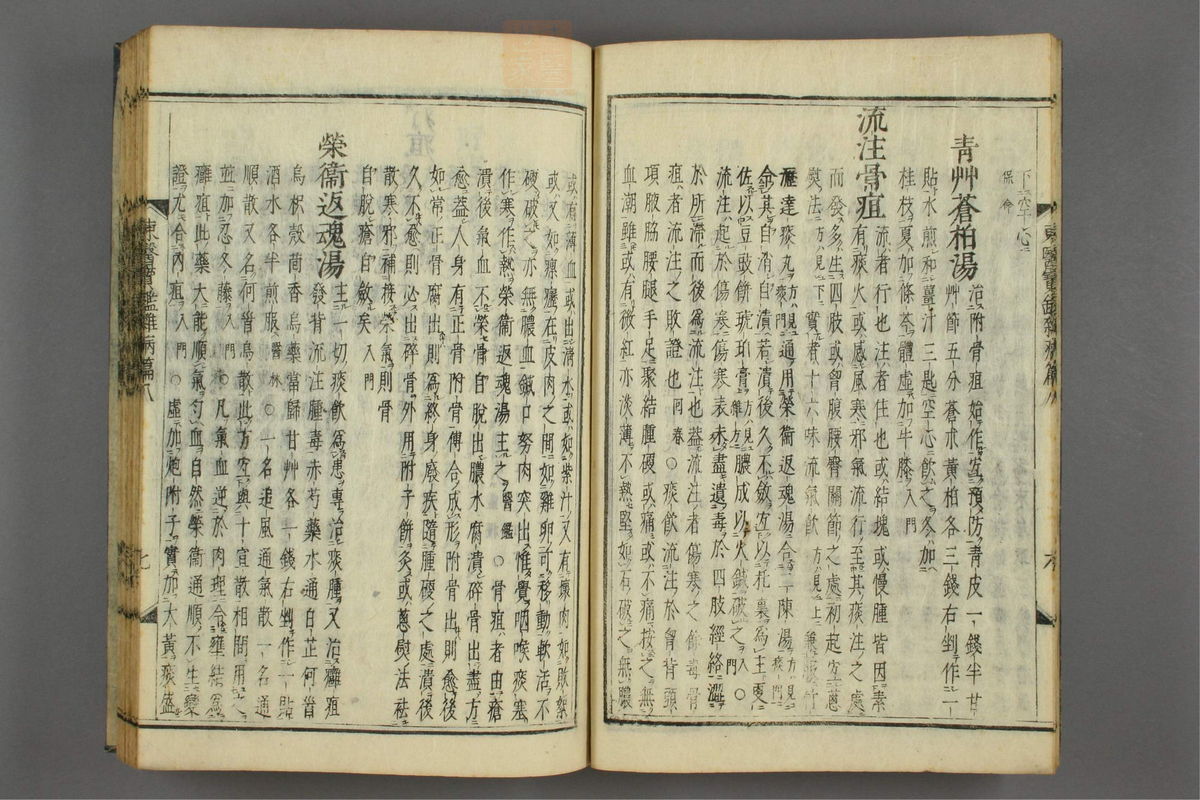 下空心
保命
青艸蒼柏湯 治附骨疽始作宜預防青皮一錢半甘
艸節五分蒼朮黃柏各三錢右剉作一
貼水煎和薑汁三匙空心飮之冬加
桂枝夏加條芩體虛加牛膝 入門
流注骨疽 流者行也注者住也或結塊或慢腫皆因素
有痰火或感風寒邪氣流行至其痰注之處
而發多生四肢或胷腹腰臀關節之處初起宜葱
熨法 方見下 實者十六味流氣飮 方見上 兼服竹
瀝達痰丸 方見痰門 通用榮衞返魂湯合二陳湯 方見痰門
令其自消自潰若潰後久不斂宜以托裏爲主更
佐以豆豉餠琥珀膏 方見雜方 膿成以火鍼破之 入門 ○
流注起於傷寒傷寒表未盡遺毒於四肢經絡澀
於所滯而後爲流注也盖流注者傷寒之餘毒骨
疽者流注之敗證也 同春 ○痰飮流注於胷背頭
項腋脇腰腿手足聚結腫硬或痛或不痛按之無
血潮雖或有微紅亦淡薄不熱堅如石破之無膿
或有薄血或出淸水或如紫汁又有壞肉如敗絮
或又如瘰癧在皮肉之間如雞卵可移動軟活不
硬破之亦無膿血鍼口努肉突出惟覺咽喉痰塞
作寒作熱榮衞返魂湯主之 醫鑑 ○骨疽者由瘡
潰後氣血不榮骨自脫出膿水腐潰碎骨出盡方
愈蓋人身有正骨附骨傅合成形附骨出則愈後
如常正骨腐出則爲終身廢疾隨腫硬之處潰後
久不愈則必出碎骨外用附子餠灸或葱熨法祛
散寒邪補接榮氣則骨
自脫瘡自斂矣 入門
榮衞返魂湯 主一切痰飮爲患專治痰腫又治癰疽
發背流注腫毒赤芍藥木通白芷何首
烏枳殼茴香烏藥當歸甘艸各一錢右剉作一貼
酒水各半煎服 醫林 ○一名追風通氣散一名通
順散又名何首烏散此方宜與十宣散相間用之
並加忍冬藤 入門 ○凡氣血逆於肉理令壅結爲
癰疽此藥大能順氣勻血自然榮衞通順不生變
證尤合內疽 入門 ○虛加炮附子實加大黃痰盛
東醫寶鑑雜病篇八
七